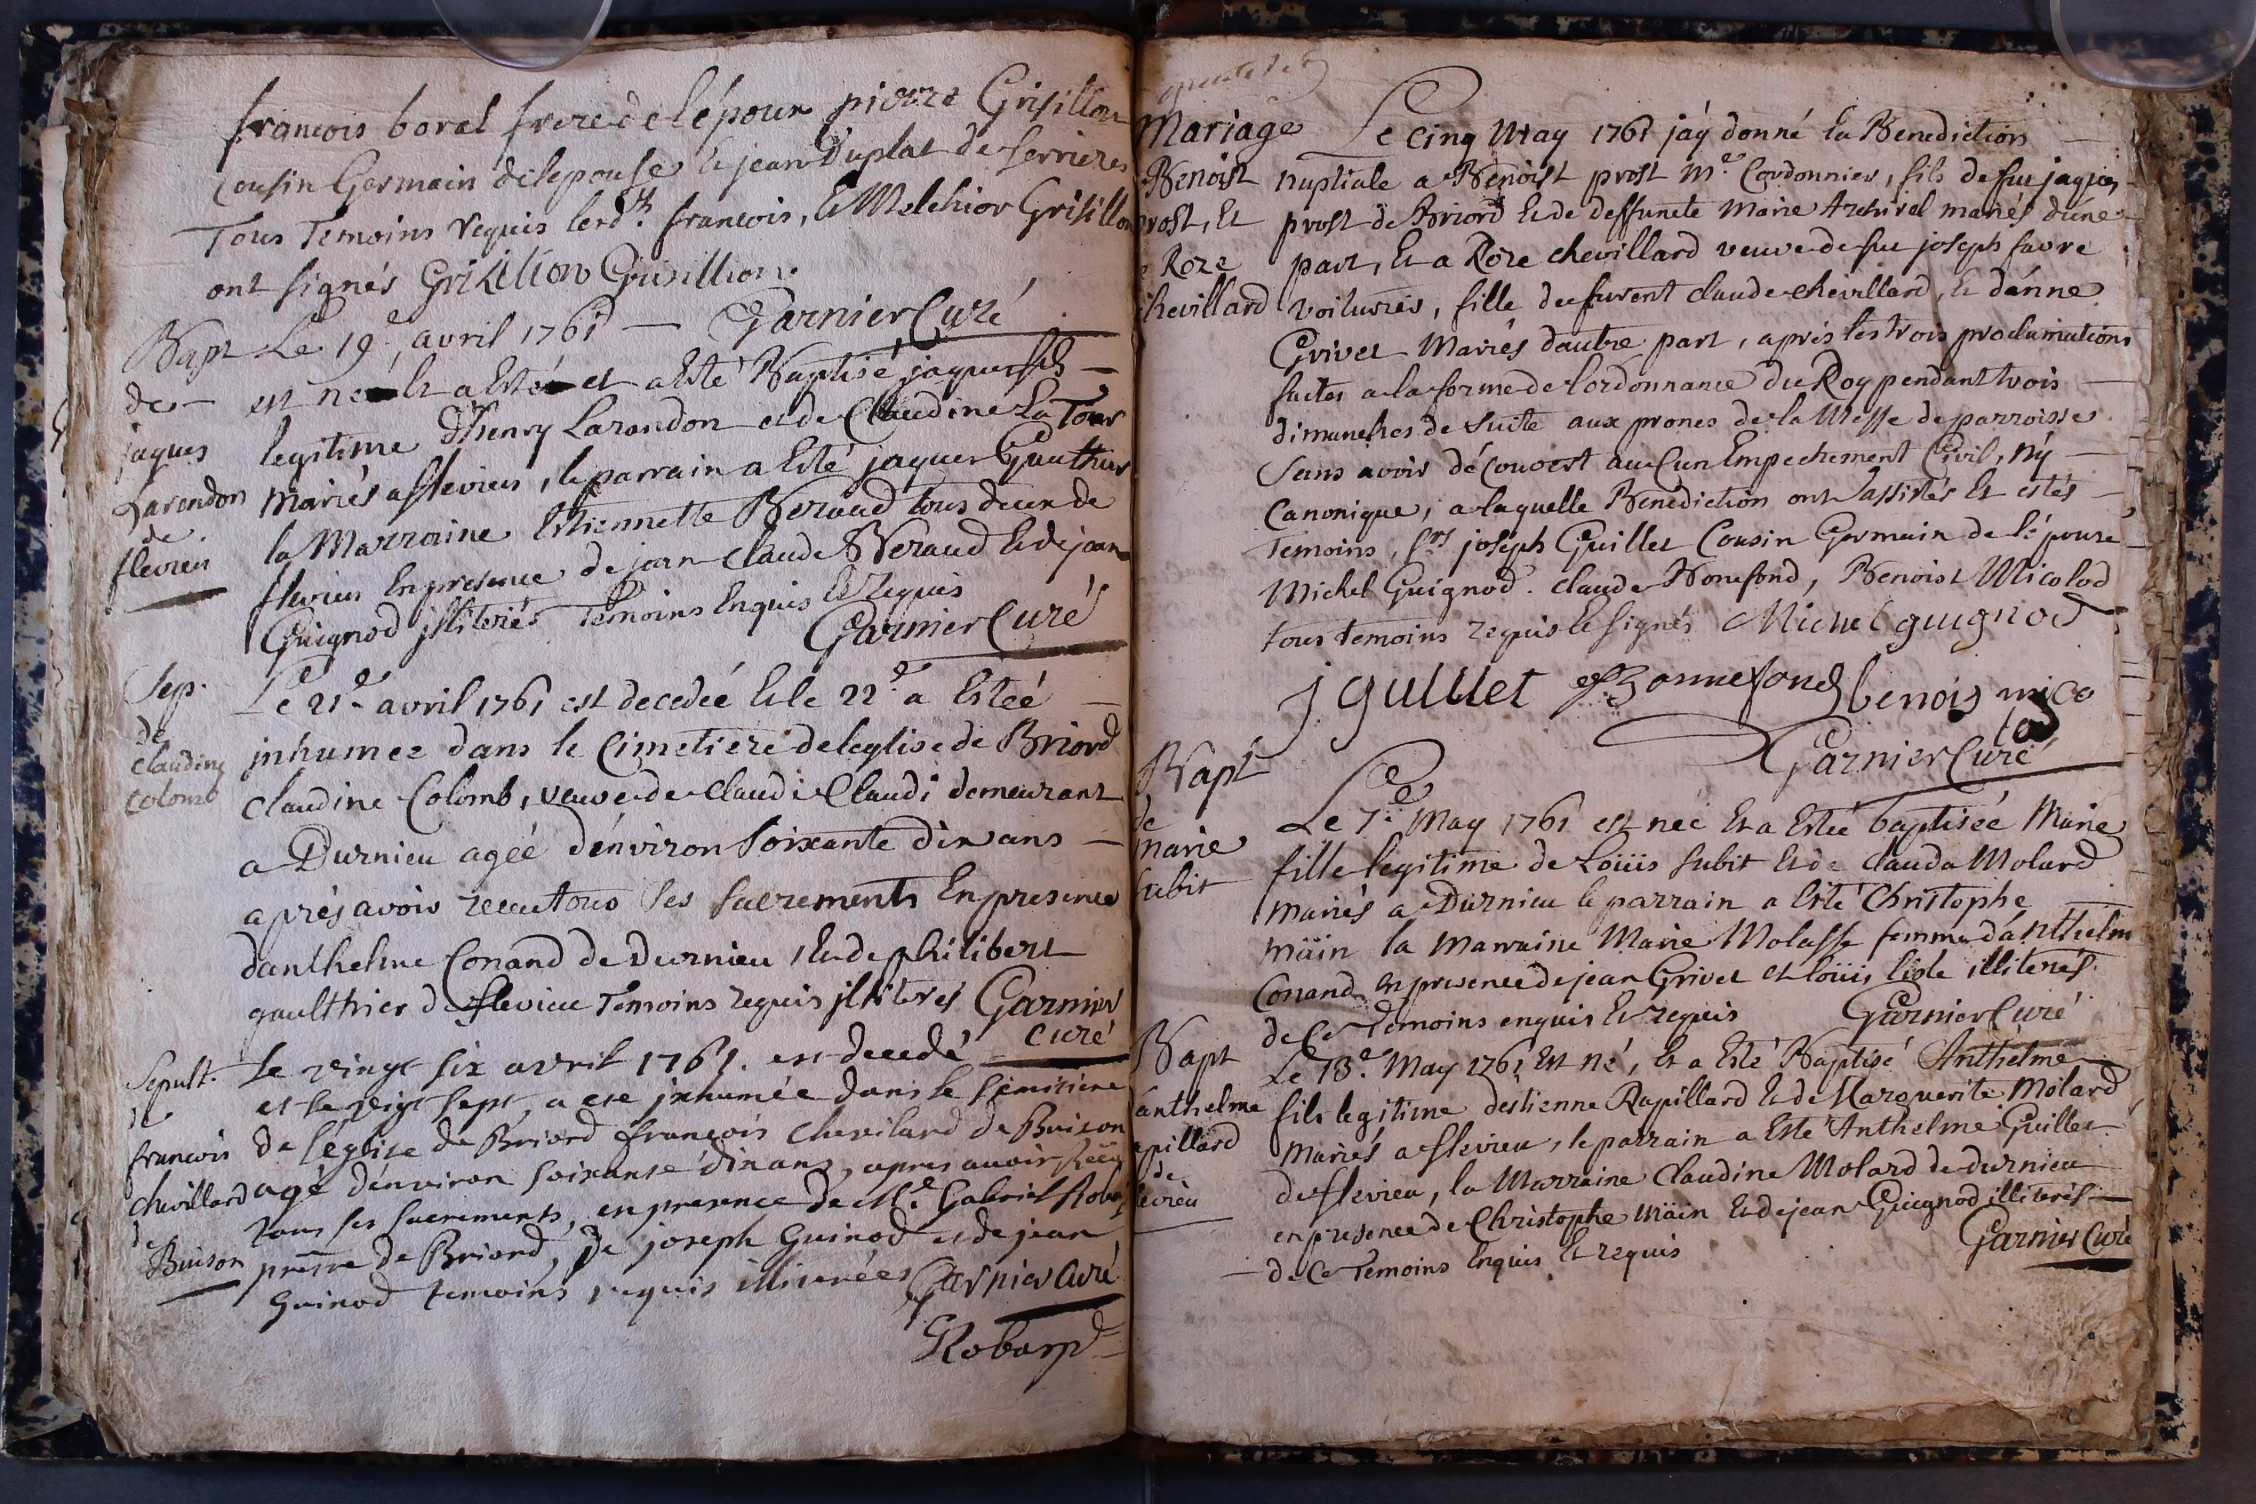 francois borel frere de lépoux pierre Grisillon
cousin Germain delepouse et jean Duplat de serrieres
Tous Temoins requis lesd.ts francois, et Melchior Grisillon
ont signés Grisillion Grisillion
Garnier Curé
Bapt
de
jaques
Larendon
de
flevieu
Le 19.e avril 1761 —
est né et a Esté et a esté Baptisé jaques fils —
legitime d'henry Larandon et de Claudine La Tour
Mariés a flevieu, le parrain a Esté jaques Gauthier
la Marraine Estiennette Beraud tous deux de
flevieu En presence de jean claude Beraud Et de jean
Guignod jlliterés Temoins Enquis Et Requis
Garnier Curé
Sep.
de
Claudine
Colomb
Le 21.e avril 1761 est decedeé Et le 22.e a Esteé —
jnhumee dans le Cimetiere de leglise de Briord
Claudine Colomb, veuve de claudi Claudi demeurant
a Durnieu ageé d'environ soixante dix ans —
aprés avoir receu tous ses sacrements En presence
danthelme Conand de Durnieu, Et de philibert
gaulthier de flevieu Temoins requis jlliterés Garnier
Curé
Sepult.
de
francois
chevillard
de
Buison
Le vingt six avril 1761. est decedé
et le vigt sept, a ete jnhumée dans le simitiere
de l'église de Briord françois chevilard de Buison
agé d'environ soixante dix ans, apres avoir Reçu
tous ses sacrements, en presence de M.e Gabriel Robin
prestre de Briord, de joseph Guinod et de jean
Guinod temoins requis illiterées Garnier Curé
Mariage
Benoist
prost, Et
Roze
chevillard
Le cinq May 1761 jaÿ donné La Benediction —
nuptiale a Benoist prost M.e Cordonnier, fils de feu jaques
prost de Briord Et de deffuncte Marie mariés dúne
part, Et a Roze chevillard veuve de feu joseph favre
voiturier, fille de furent claude chevillard, Et dánne
Grivet Mariés dautre part, aprés les trois proclamations
faites a la forme de lordonnance du Roy pendant trois —
dimanches de suite aux prones de la Messe de parroisse
sans avoir découvert auCun Empechement Civil, nÿ —
Canonique, a laquelle Benediction ont assistés Et estés
Temoins, srs joseph Guillet Cousin Germain de lépouse
Michel Guignod. claude Bonnefond, Benoist Micolod
tous temoins requis Et signés Michel guignod
j guillet Bonnefond benois mico
lod
Garnier Curé
Bapt
de
Marie
Subit
Le 7.e May 1761 est neé Et a Esteé baptiseé Marie
fille legitime de Loüis subit Et de clauda Molard
Mariés a Durnieu le parrain a Esté Christophe —
Mäin la Marraine Marie Molasse femme dánthelm
Conand, en presence de jean Grivet et loüis illiterés
de Ce Temoins enquis Et requis Garnier Curé
Bapt
anthelme
Rapillard
de
flevieu
Le 13.e May 1761 Est né, Et a Esté Baptisé Anthelme
fils legitime destienne Rapillard Et de Marguerite Molard
Mariés a flevieu, le parrain a Este Anthelme Guillet
de flevieu, la Marraine Claudine Molard de durnieu
en presence de Christophe Mäin Et de jean Guignod illiterés —
— de Ce Temoins Enquis Et requis Garnier Curé